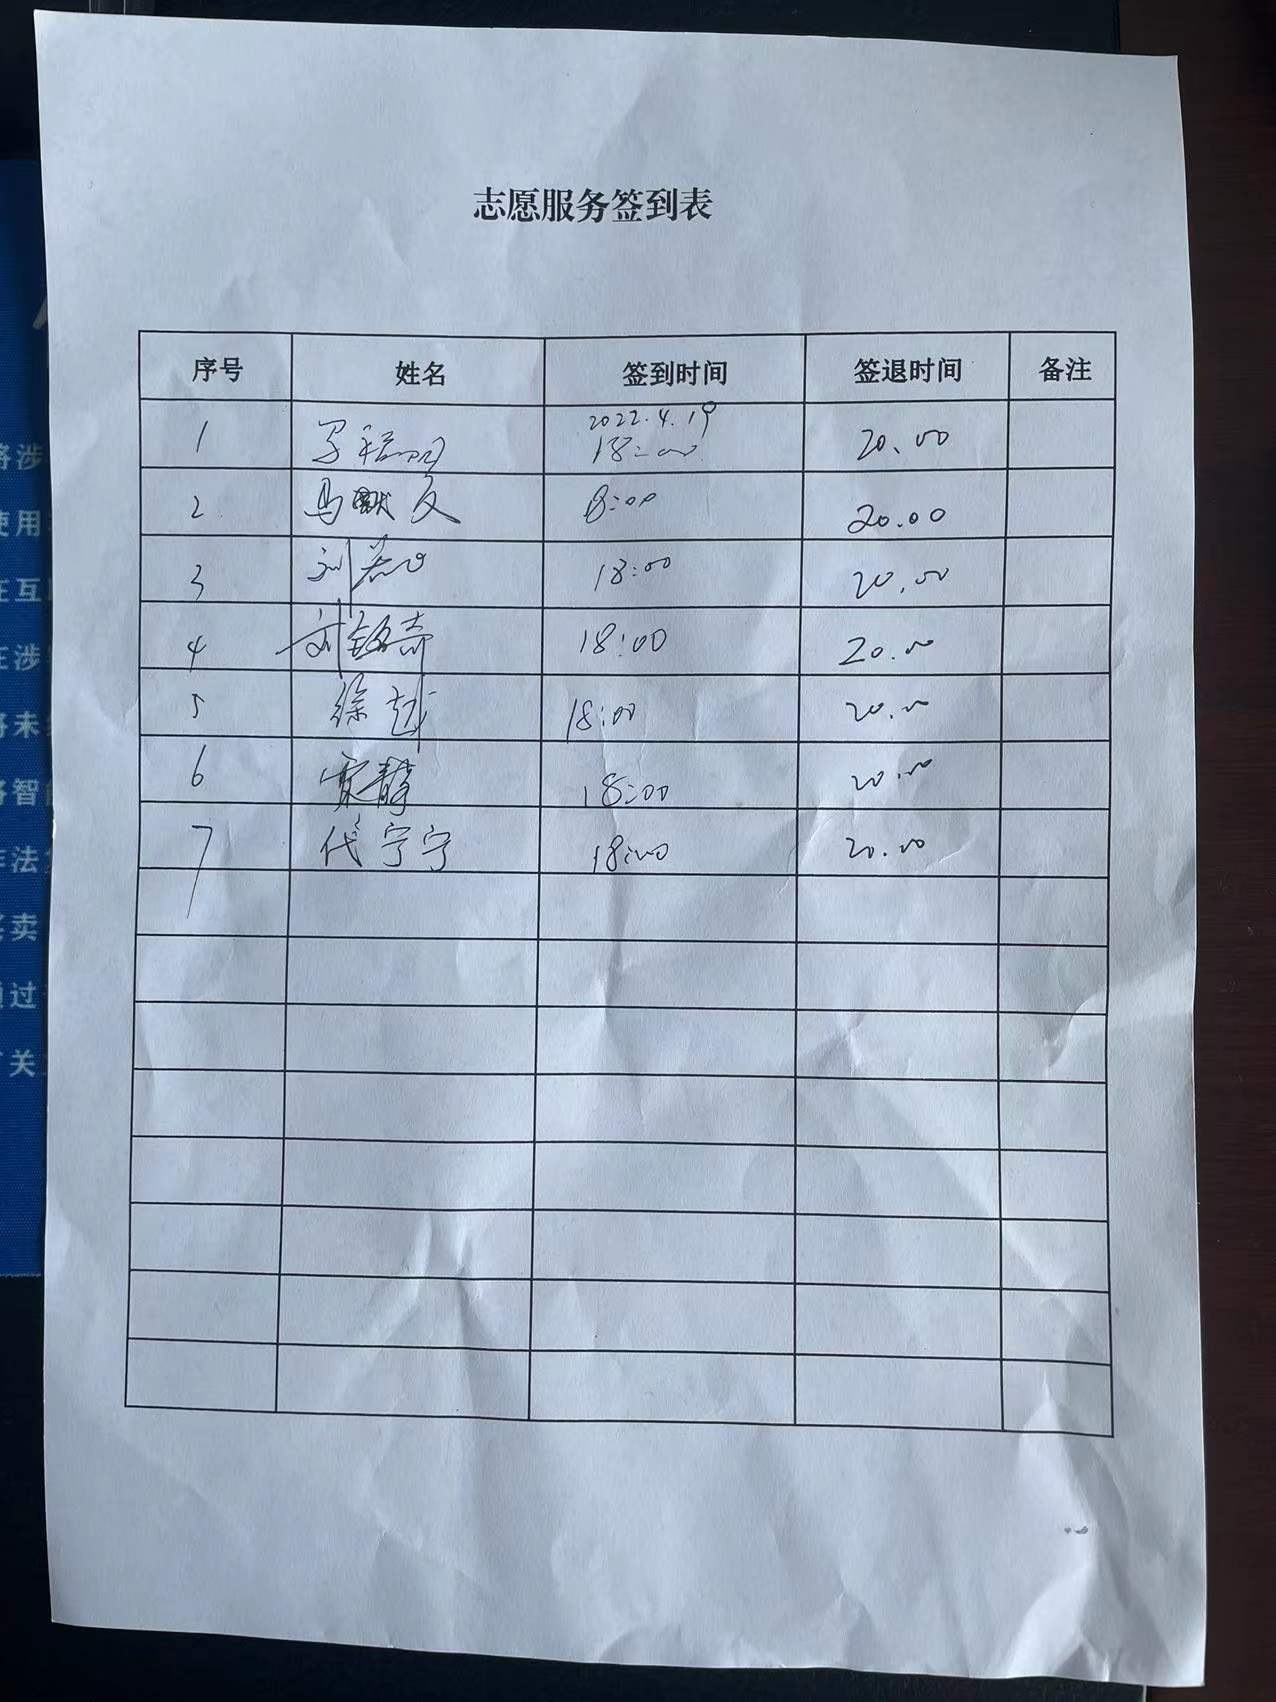 志愿服务签到表
序号 姓名 签到时间 签退时间 备注
2022.4.19
1 18:00 20.00
2 马 文 8:00 20.00
3 刘 18:00 20.00
4 刘 奇 18:00 20.00
5 徐越 18:00 20.00
6 静 18:00 20.00
7 代宁宁 18:00 20.00
将涉
使用
在互
在涉
将未
将智
作法
买卖
通过
有关